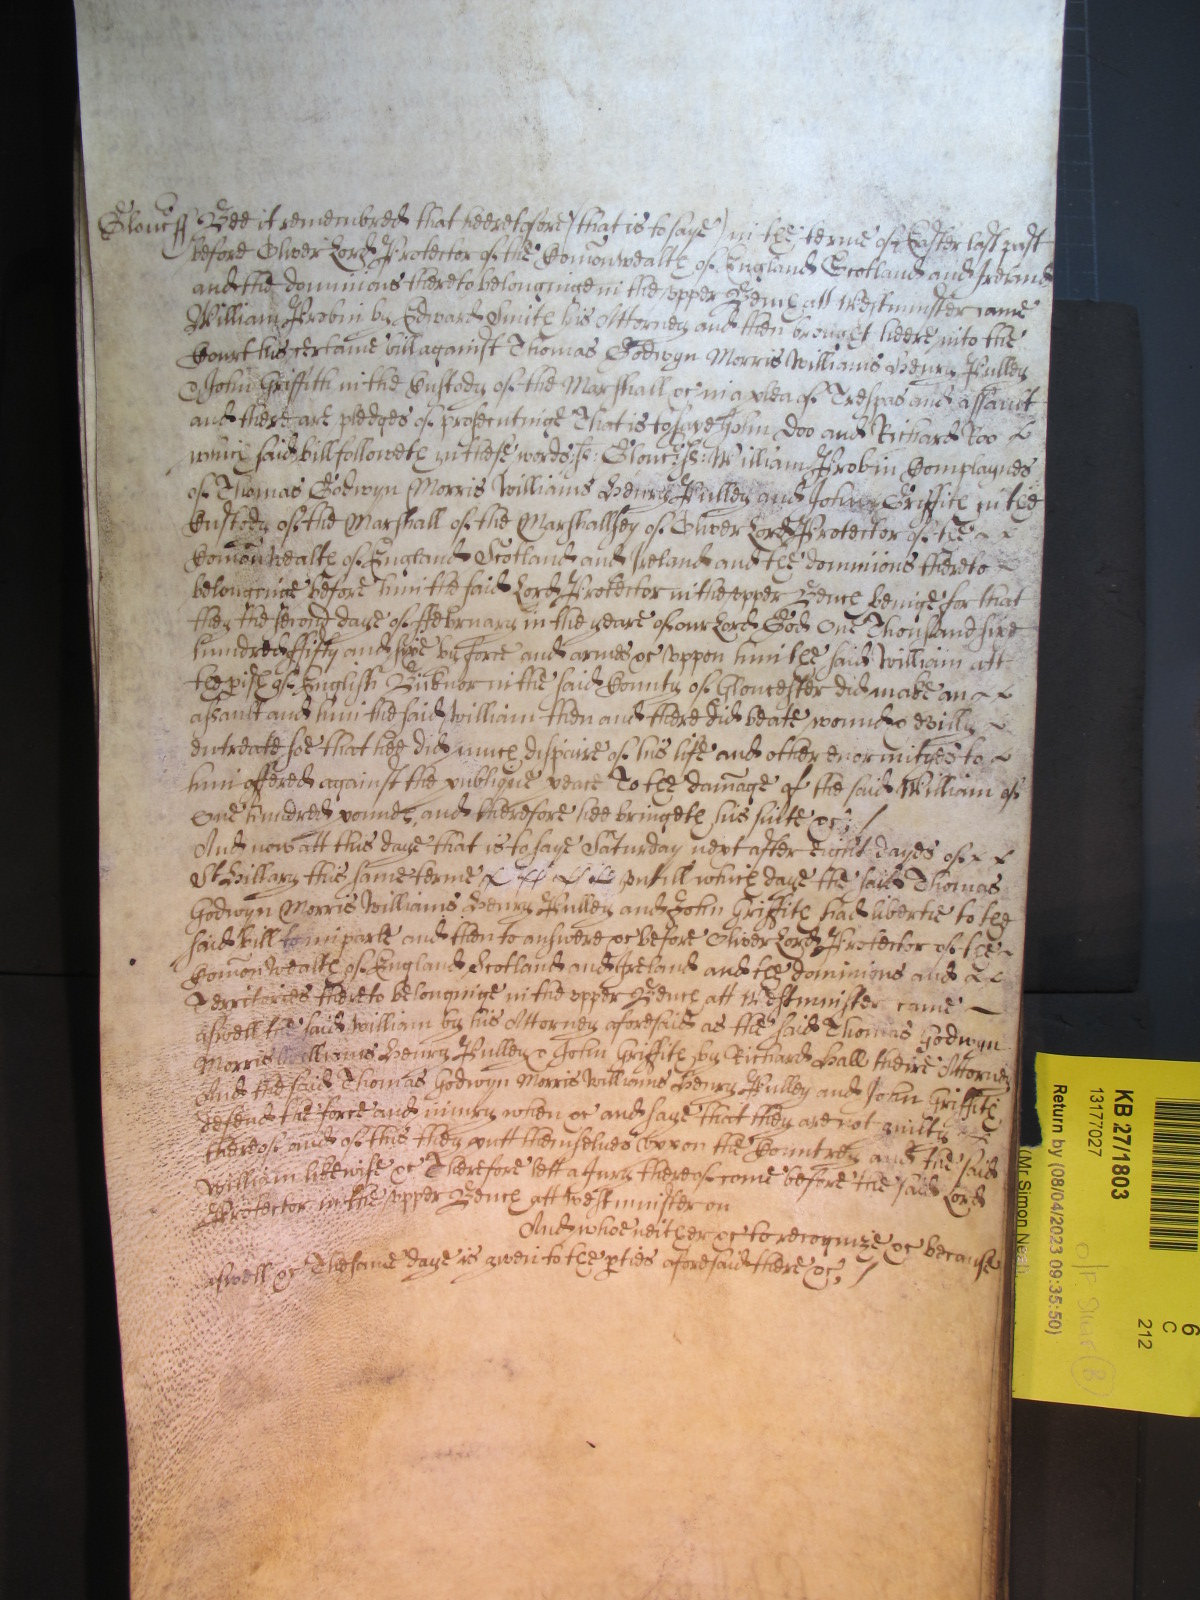 Gloucr ss Bee it remembred that heeretofore (that is to saye) in the terme of Easter last past
before Oliver Lord Protector of the Comonwealth of England Scotland and Ireland
and the dominions thereto belonginge in the upper Bench att Westminster came
William Probin by Edward Smith his Attorney and then brought heere into the
Court his certaine bill against Thomas Godwyn Morris Williams Henry Pulley
& John Griffith in the Custody of the Marshall &c in a plea of Trespas and assault
and there are pledges of prosecutinge That is to saye John Doo and Richard Roo
which said bill followeth in these words ss: Gloucr ss: William Probin Complaynes
of Thomas Godwyn Morris Williams Henry Pulley and John Griffith in the
Custody of the Marshall of the Marshallsey of Oliver Lord Protector of the
Comonwealth of England Scotland and Ireland and the dominions thereto
belonginge before him the said Lord Protector in the upper Bench beinge for that
they the second daye of ffebruary in the yeare of our Lord God One Thousand sixe
hundred ffifty and sixe by force and armes &c uppon him the said William att
the pish of English Bicknor in the said County of Gloucester did make an
assault and him the said William then and there did beate wound & evilly
entreate soe that hee did much dispaire of his life and other enormityes to
him offered against the publique peace To the damage of the said William of
One hundred pounds, and therefore hee bringeth his suite &c; /
And now att this daye that is to saye Saturday next after eight dayes of
St Hillary this same terme untill which daye the said Thomas
Godwyn Morris Williams Henry Pulley and John Griffith had libertie to the
said bill to imparle and then to answere &c before Oliver Lord Protector of the
Comonwealth of England Scotland and Ireland and the dominions and
Territories thereto belonginge in the upper Bench att Westminster came
aswell the said William by his Attorney aforesaid as the said Thomas Godwyn
Morris Williams Henry Pulley & John Griffith by Richard Hall theire Attorney
And the said Thomas Godwyn Morris Williams Henry Pulley and John Griffith
defend the force and iniury when &c and saye that they are not guilty
thereof and of this they putt themselves uppon the Countrey and the said
William likewise &c Therefore lett a Jury thereof come before the said Lord
Protector in the upper Bench att Westminster on
And whoe neither &c to recognize &c because
aswell &c The same daye is given to the pties aforesaid there &c; /
KB 27/1803
13177027
Return by (08/04/2023 09:35:50)
(Mr Simon Neal)
6
C
212
8